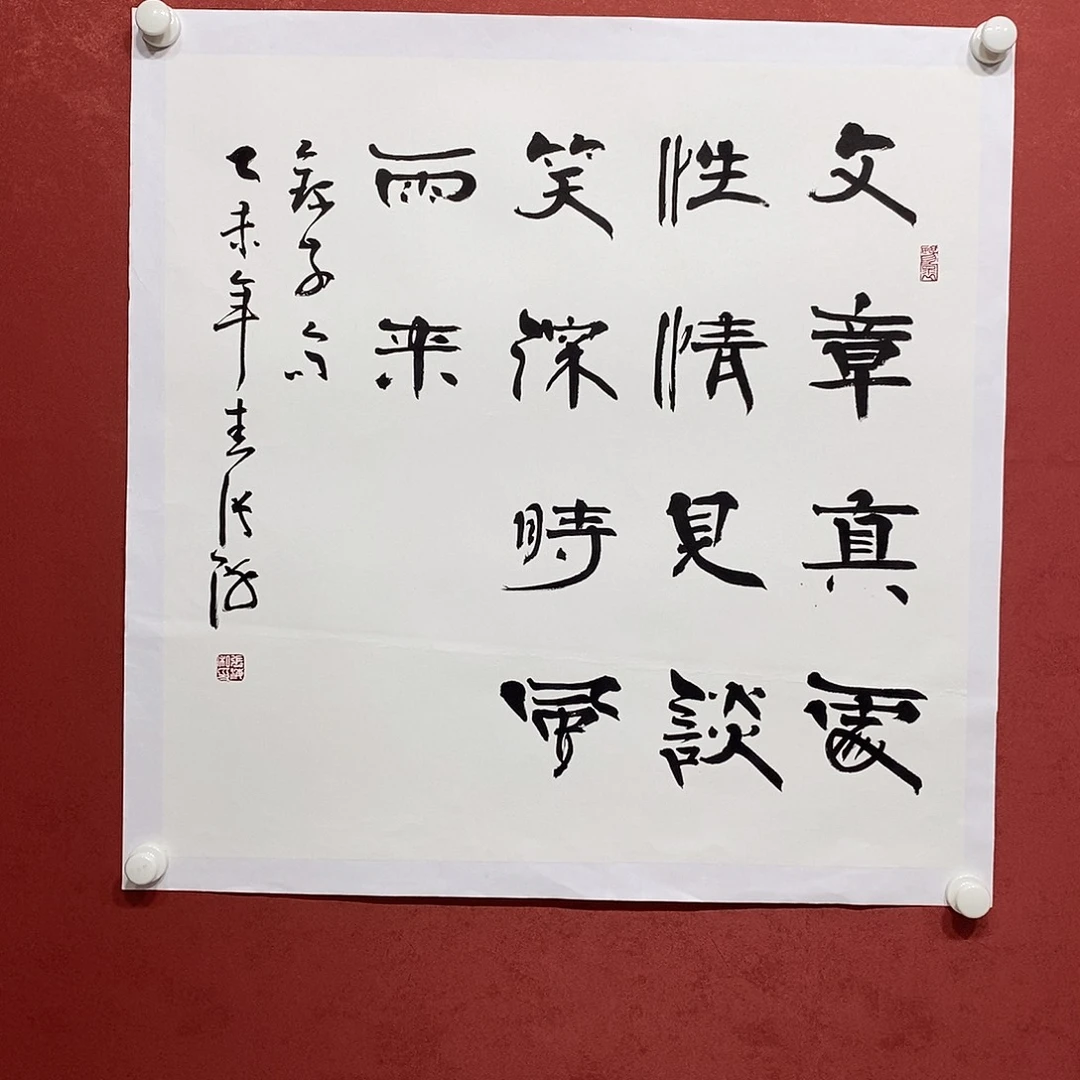 文章真處
性情見談
笑深時風
雨来
乙未年